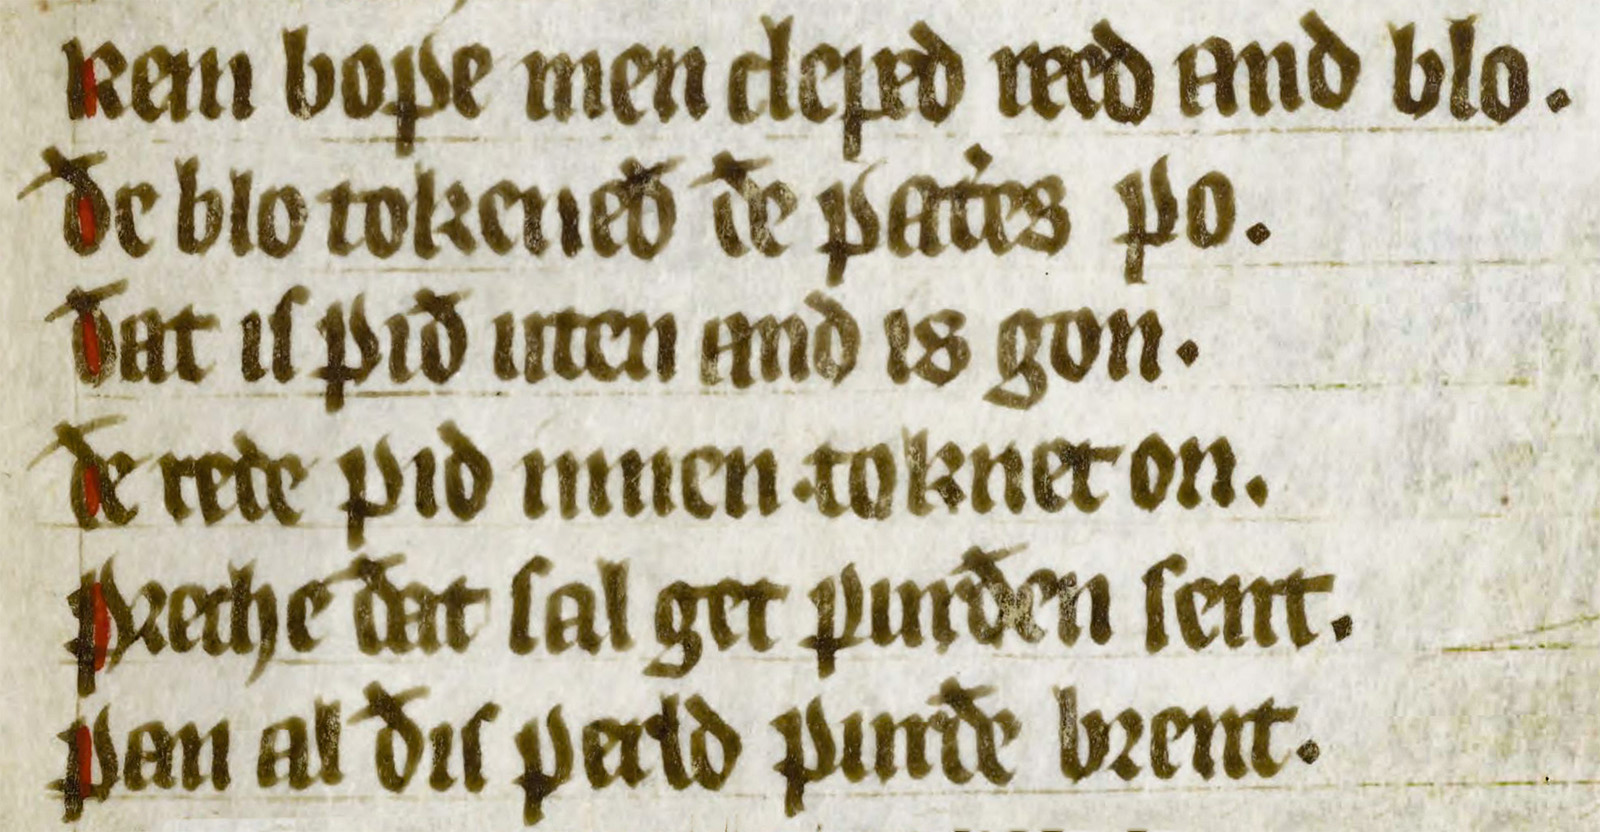 Rein boƿe men cleped reed and blo.
ðe blo tokeneð ðe ƿat'es ƿo.
ðat is ƿið uten and is gon.
ðe rede ƿid innen toknet on.
ƿreche ðat sal get ƿurðen sent.
ƿan al ðis ƿerld ƿurðe brent.